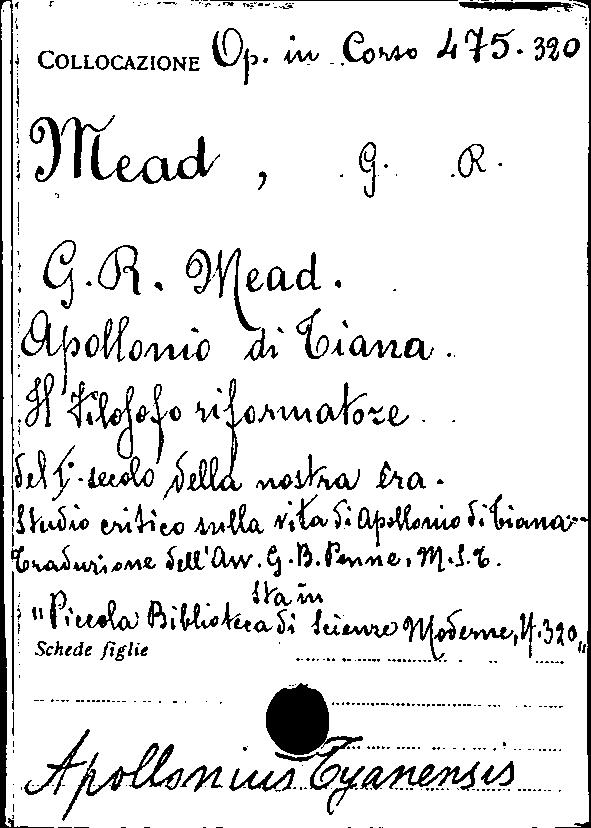 COLLOCAZIONE Op. in Corso 475.320
Mead, G. R.
G. R. Mead.
Apollonio di Tiana.
Il Filosofo riformatore
del 1º secolo della nostra Era.
Studio critico sulla vita di Apollonio di Tiana.-
Traduzione dell'Avv. G. B. Penne, M.S.T.
Sta in
"Piccola Biblioteca di Scienze Moderne, N. 320"
Schede figlie
Apollonius Tyanensis